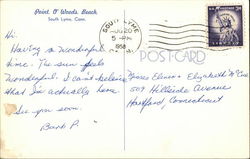 Point O' Woods Beach
South Lyme, Conn.
SOUTH LYME
AUG 20
5 -PM
1958
CONN.
POST CARD
Hi.
Having a wonderful
time. The sun feels
wonderful. I can't believe
that I'm actually here.
See you soon.
Barb P.
Misses Elinor & Elizabeth
509 Hillside Avenue
Hartford, Connecticut